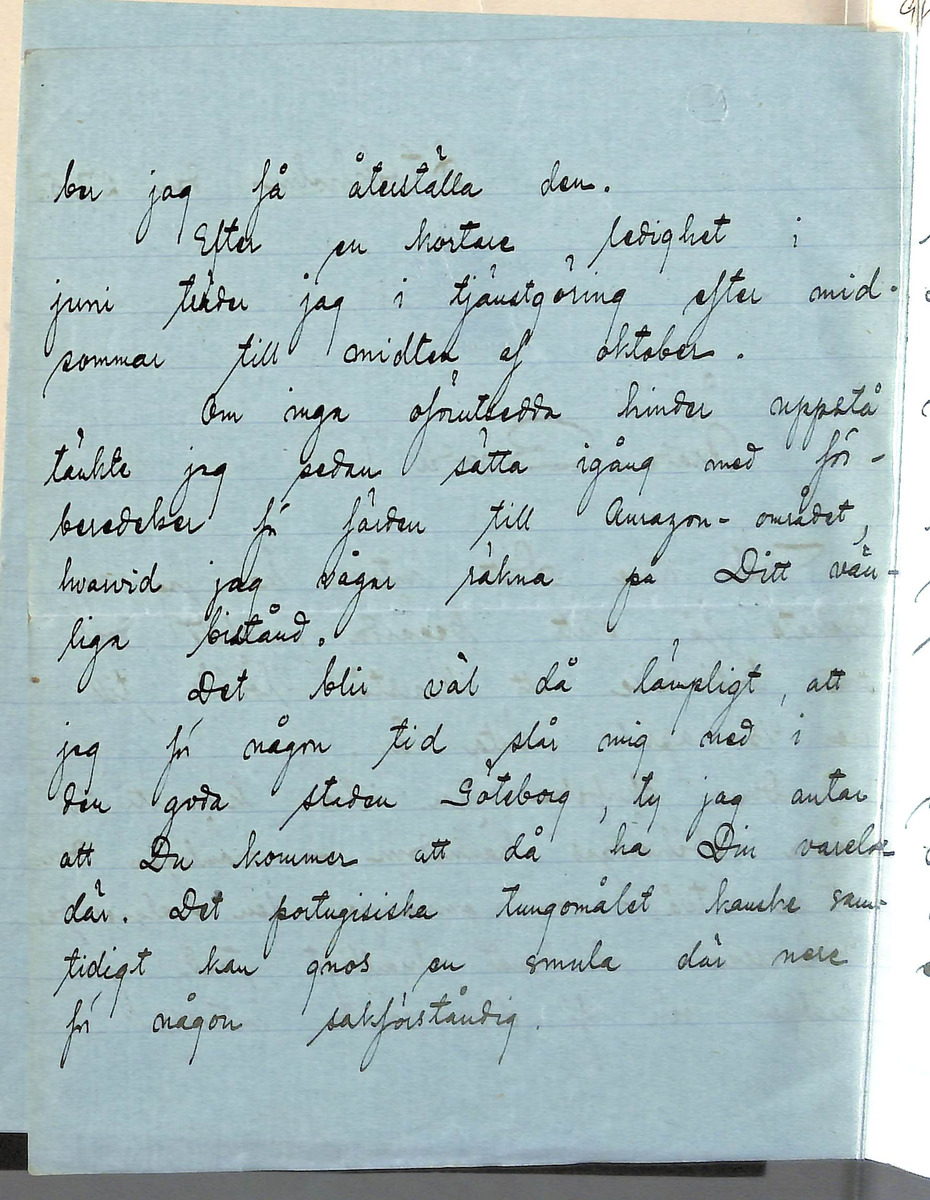 ber jag få återställa den.
Efter en kortare ledighet i
juni träder jag i tjänstgöring efter mid-
sommar till midten af oktober.
Om inga oförutsedda hinder uppstå
tänkte jag sedan sätta igång med för-
beredelser för färden till Amazon-området,
hvarvid jag vågar räkna på Ditt vän-
liga bistånd.
Det blir väl då lämpligt, att
jag för någon tid slår mig ned i
den goda staden Göteborg, ty jag antar
att Du kommer att då ha Din varelse
där. Det portugisiska tungomålet kanske sam-
tidigt kan gnos en smula där nere
för någon sakförståndig.